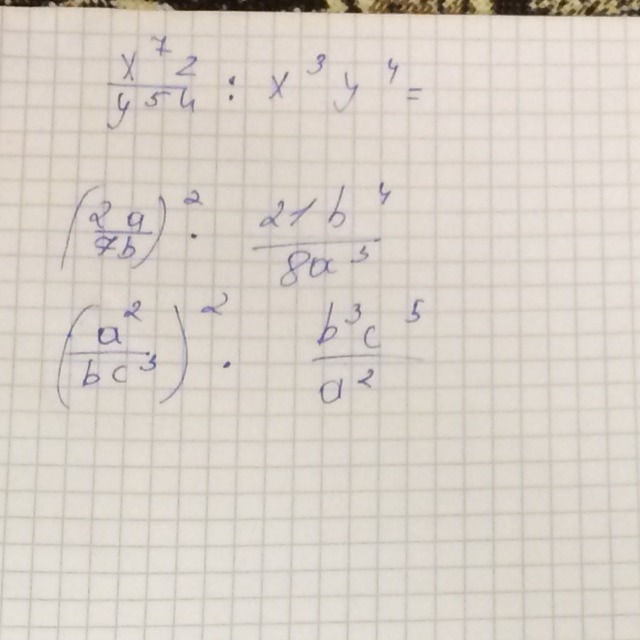 x⁷2/y54 : x³y⁴=
(2a/7b)² · 21b⁴/8a⁵
(a²/bc³)² · b³c⁵/a²